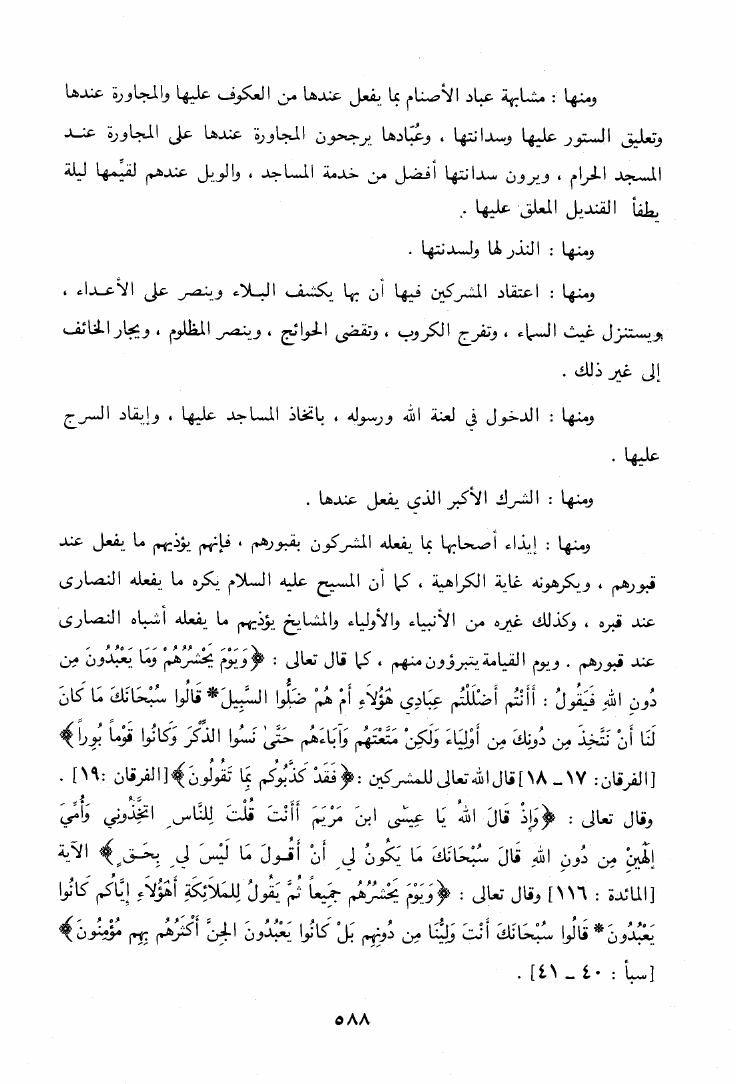 ومنها : مشابهة عباد الأصنام بما يفعل عندها من العكوف عليها والمجاورة عندها
وتعليق الستور عليها وسدانتها ، وعُبّادها يرجحون المجاورة عندها على المجاورة عنـد
المسجد الحرام ، ويرون سدانتها أفضل من خدمة المساجد ، والويل عندهم لقيِّمها ليلة
يطفأ القنديل المعلق عليها .
ومنها : النذر لها ولسدنتها .
ومنها : اعتقاد المشركين فيها أن بها يكشف البـلاء وينصر على الأعـداء ،
ويستنزل غيث السماء ، وتفرج الكروب ، وتقضى الحوائج ، وينصر المظلوم ، ويجار الخائف
إلى غير ذلك .
ومنها : الدخول في لعنة الله ورسوله ، باتخاذ المساجد عليها ، وإيقاد السرج
عليها .
ومنها : الشرك الأكبر الذي يفعل عندها .
ومنها : إيذاء أصحابها بما يفعله المشركون بقبورهم ، فإنهم يؤذيهم ما يفعل عند
قبورهم ، ويكرهونه غاية الكراهية ، كما أن المسيح عليه السلام يكره ما يفعله النصارى
عند قبره ، وكذلك غيره من الأنبياء والأولياء والمشايخ يؤذيهم ما يفعله أشباه النصارى
عند قبورهم . ويوم القيامة يتبرؤون منهم ، كما قال تعالى : ﴿وَيَوْمَ يَحْشُرُهُمْ وَمَا يَعْبُدُونَ مِن
دُونِ اللهِ فَيَقُولُ : أَأَنْتُم أَضْلَلْتُم عِبَادِي هَؤُلَاءِ أَمْ هُمْ ضَلُّوا السَّبِيلَ* قَالُوا سُبْحَانَكَ مَا كَانَ
لَنَا أَنْ نَتَّخِذَ مِن دُونِكَ مِن أَوْلِيَاءَ وَلَكِنْ مَتَّعْتَهُم وَآبَاءَهُم حَتَّىٰ نَسُوا الذِّكْرَ وَكَانُوا قَوْماً بُوراً﴾
[الفرقان: ١٧ـ ١٨] قال الله تعالى للمشركين :﴿فَقَدْ كَذَّبُوكُم بِمَا تَقُولُونَ﴾[الفرقان :١٩] .
وقال تعالى : ﴿وَإِذْ قَالَ اللهُ يَا عِيسَى ابنَ مَرْيَمَ أَأَنْتَ قُلْتَ لِلنَّاسِ اتَّخِذُونِي وَأُمِّيَ
إِلَهَينِ مِن دُونِ اللهِ قَالَ سُبْحَانَكَ مَا يَكُونُ لِي أَنْ أَقُـولَ مَا لَيْسَ لِي بِحَـقٍ﴾ الآية
[المائدة : ١١٦] وقال تعالى : ﴿وَيَوْمَ يَحْشُرُهُم جَمِيعاً ثُمَّ يَقُولُ لِلمَلَائِكَةِ أَهَؤُلَاءِ إِيَّاكُم كَانُوا
يَعْبُدُونَ* قَالُوا سُبْحَانَكَ أَنْتَ وَلِيُّنَا مِن دُونِهِم بَلْ كَانُوا يَعْبُدُونَ الجِنَّ أَكْثَرُهُم بِهِم مُؤْمِنُونَ﴾
[سبأ : ٤٠ ـ ٤١] .
٥٨٨